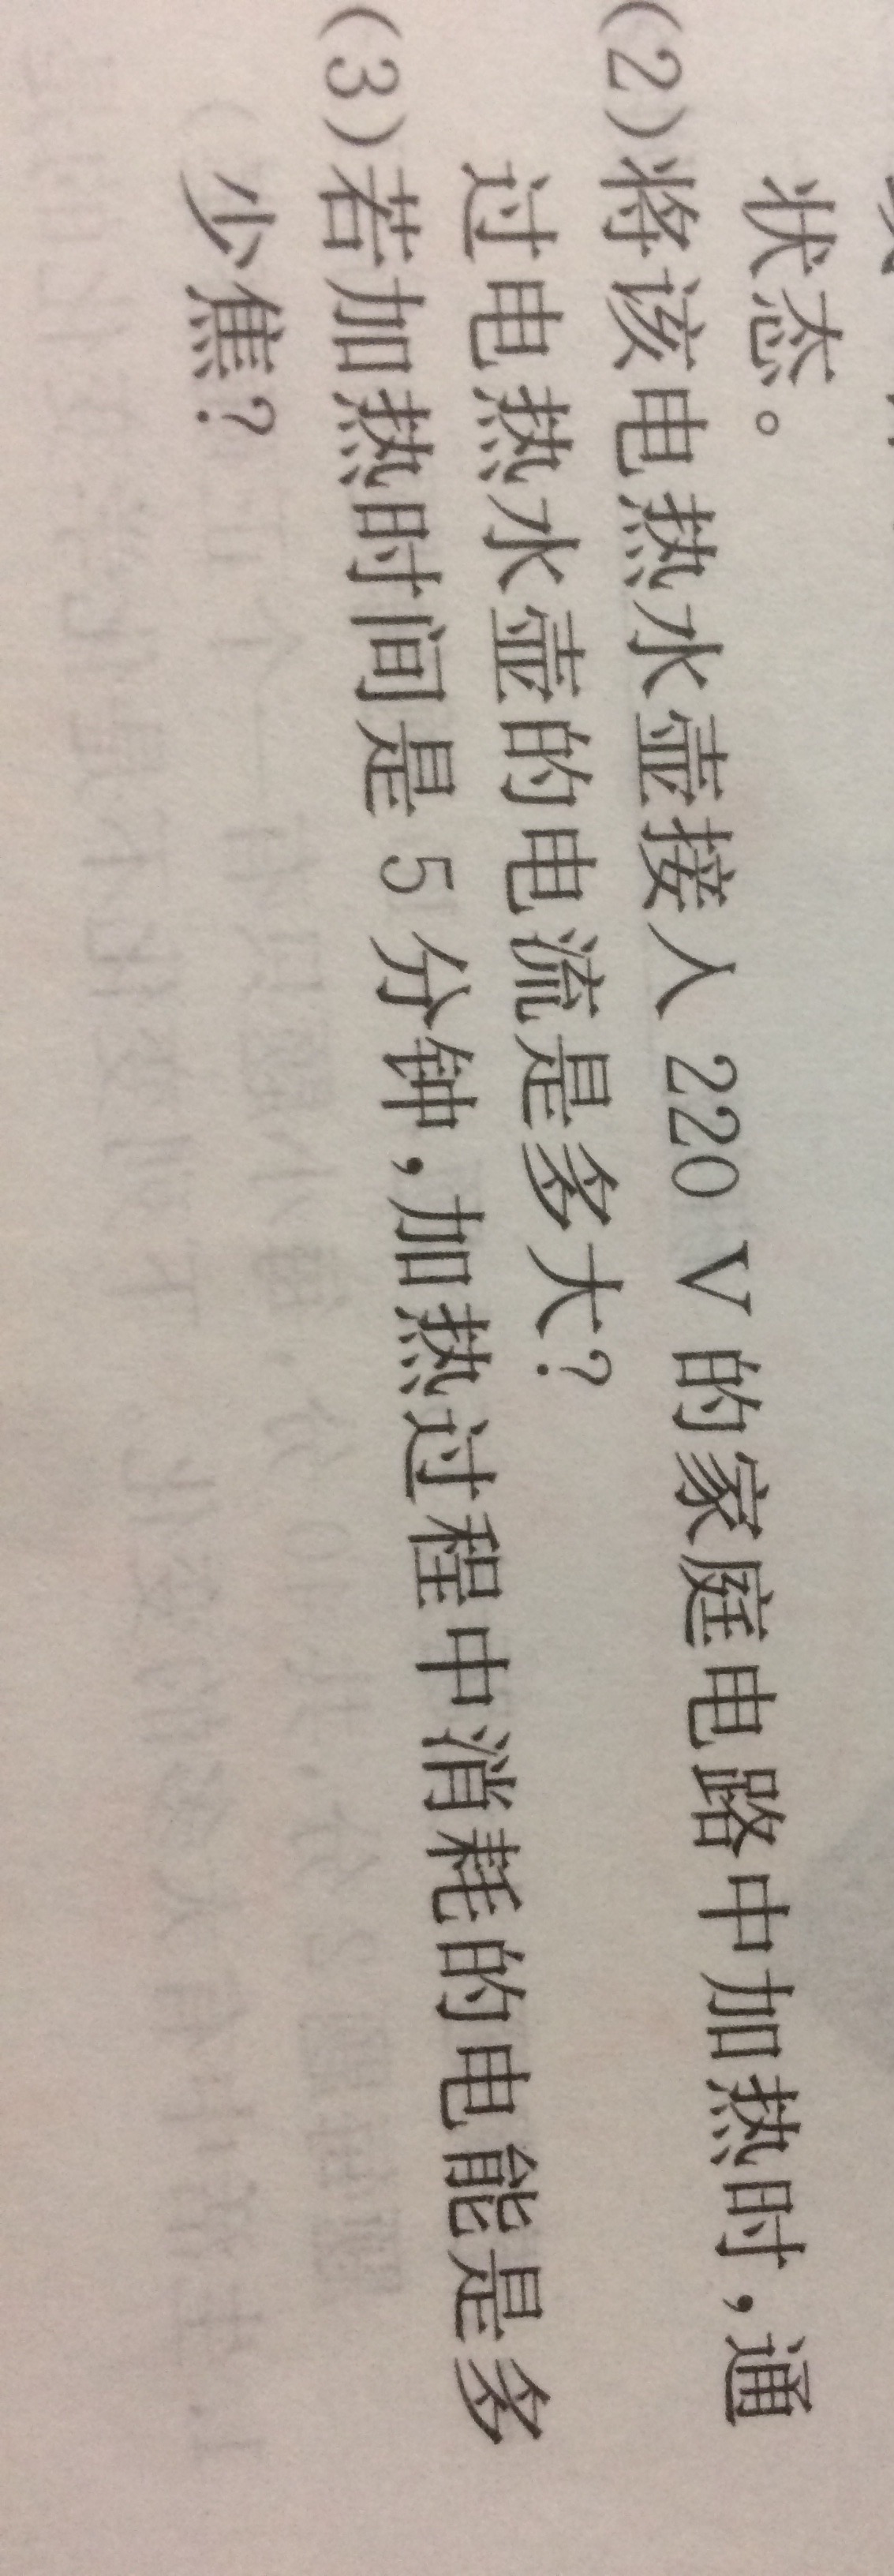 状态。
(2)将该电热水壶接入 220 V 的家庭电路中加热时,通
过电热水壶的电流是多大?
(3)若加热时间是 5 分钟,加热过程中消耗的电能是多
少焦?